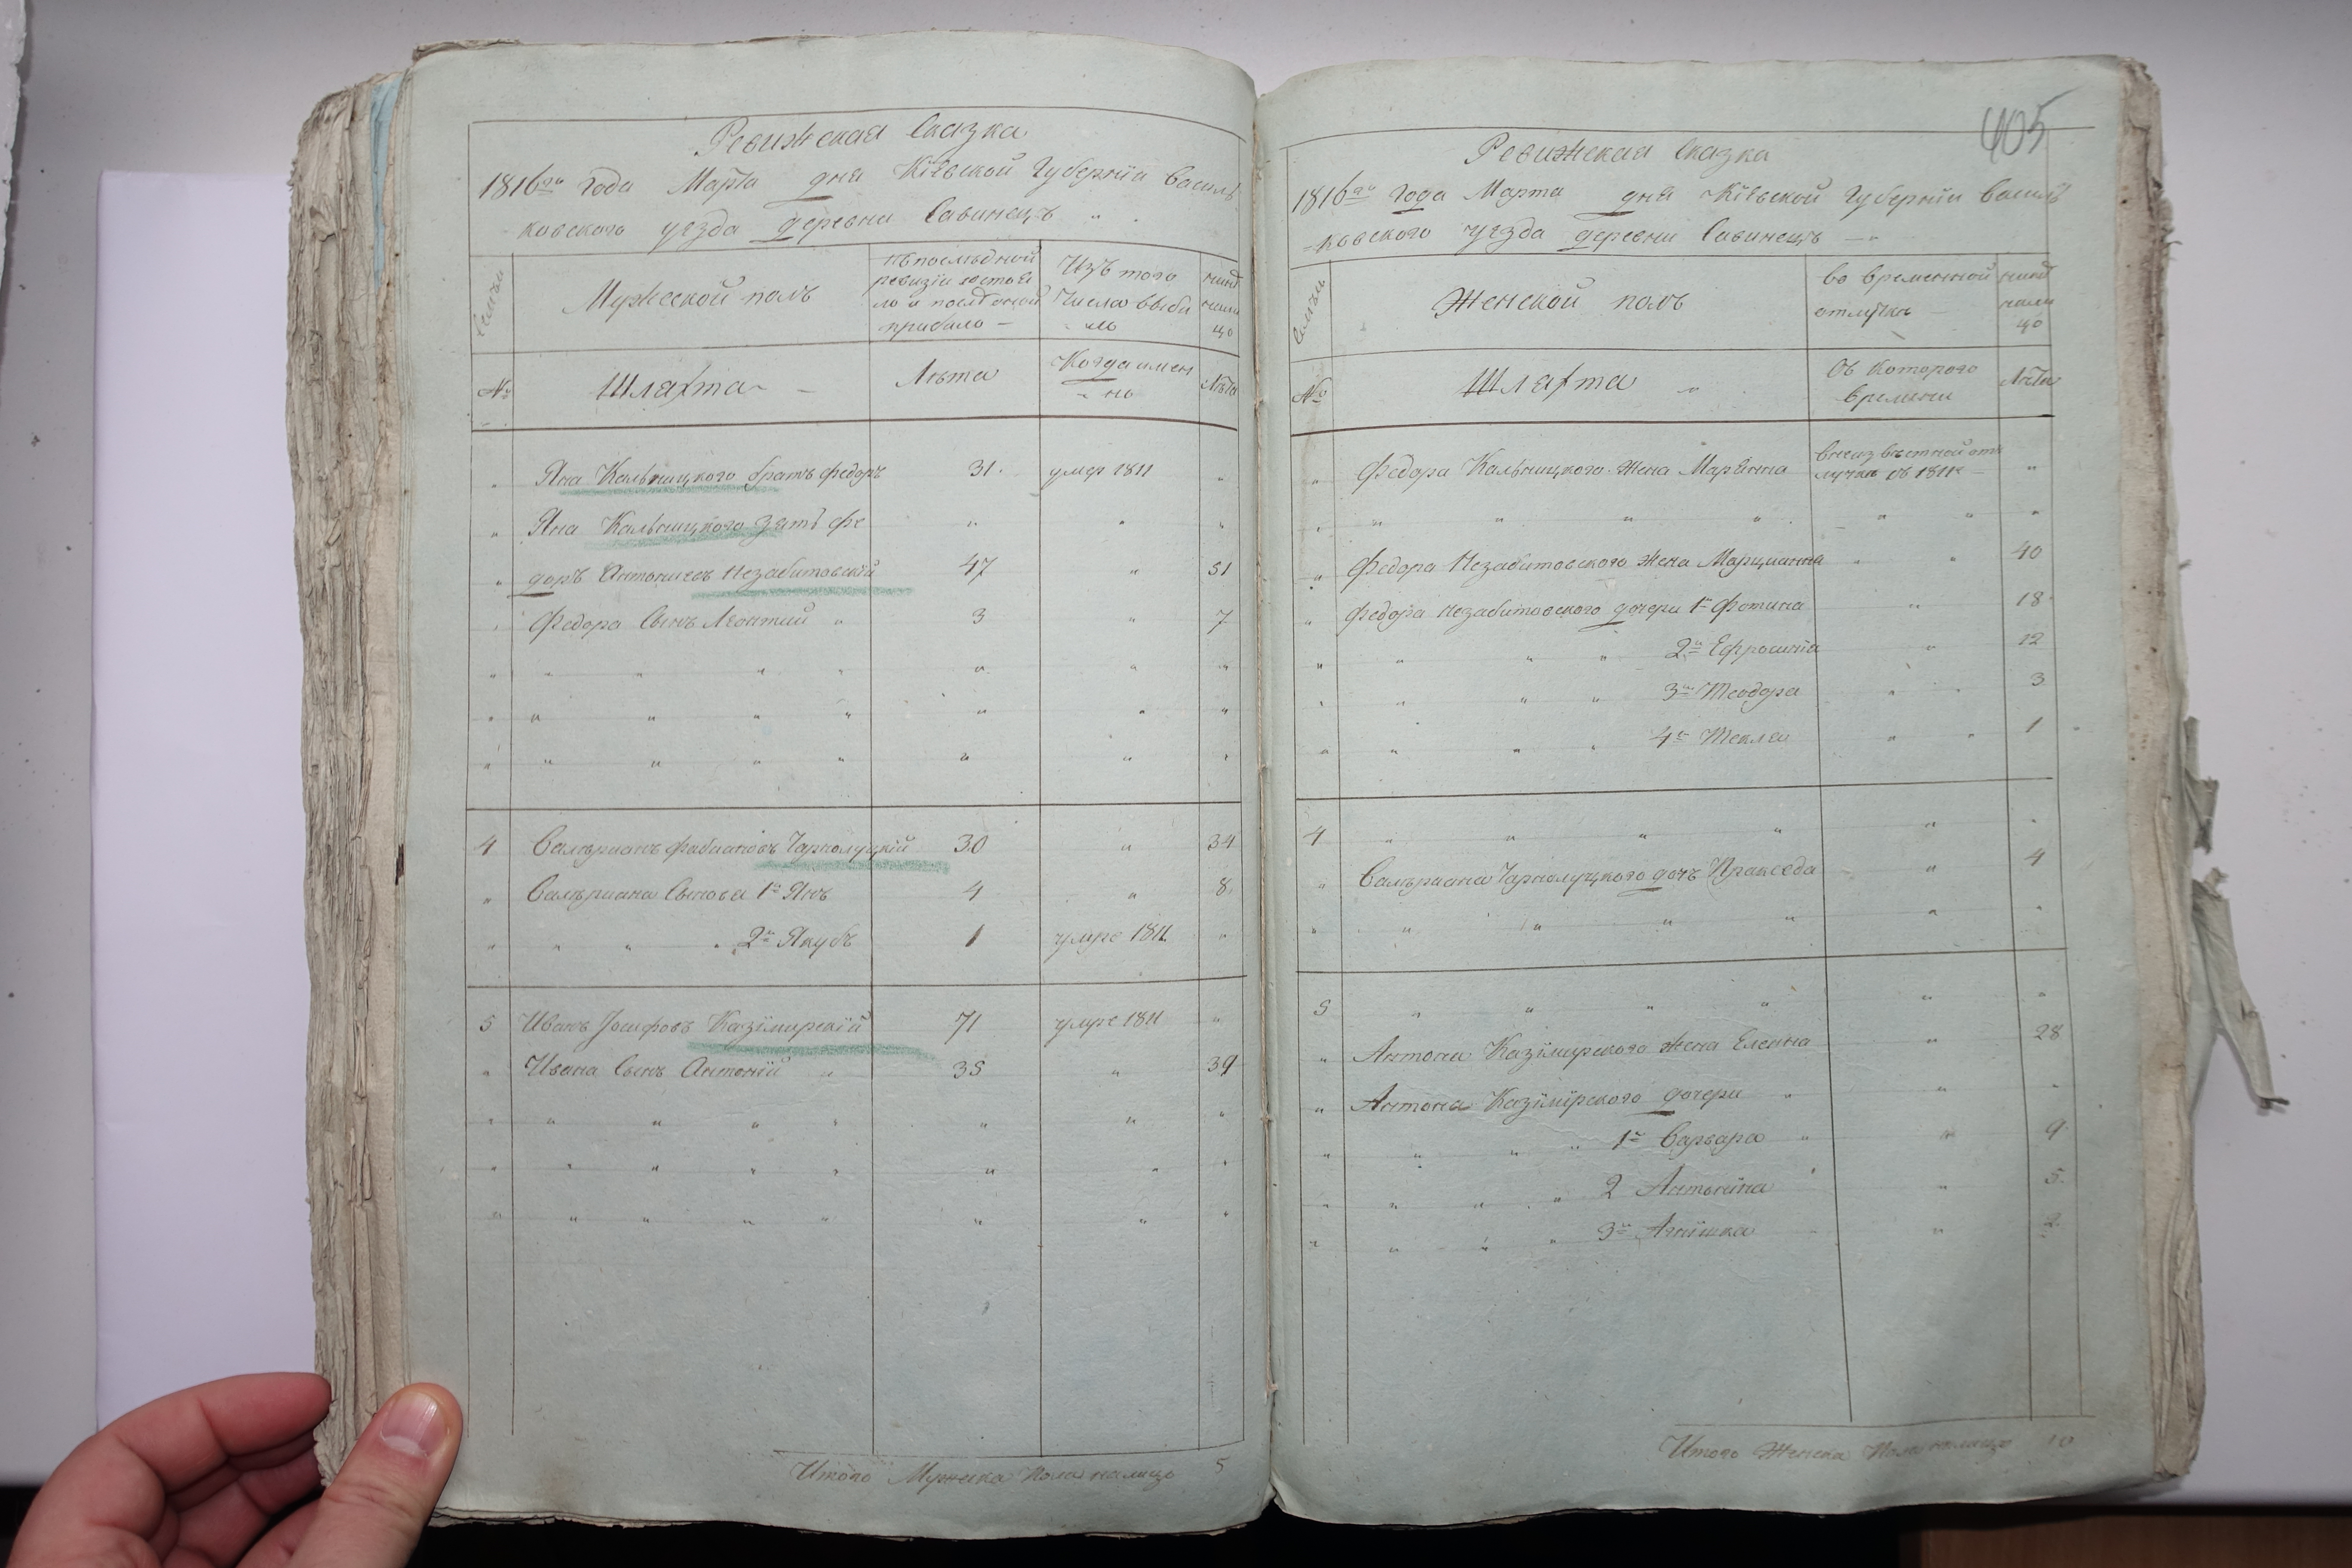 Ревижская Сказка
1816го года Марта дня Кіевской Губерніи Василь
ковского уезда деревни Савинецъ
Семьи
Мужеской полъ
въ последной
ревизіи состоя
ло и после оной
прибыло —
Изъ того
числа выбы
ло
ныне
нали
цо
№
Шляхта —
Лѣта
Когда имен
но
Лѣта
Яна Кальницкого братъ Федоръ 31. умер 1811
Яна Кальницкого зять Фе
доръ Антониевъ Незабитовскій 47 51
Федора Сынъ Леонтий 3 7
4 Валериянъ Фабиановъ Чарнолуцкій 30 34
Валериана Сынова 1й Янъ 4 8
2й Якубъ 1 умре 1811
5 Иванъ Іосифовъ Казімирскій 71 умре 1811
Ивана Сынъ Антоній 35 39
Итого Мужеска Пола налицо 5
405
Ревижская Сказка
1816го Года Марта дня Кіевской Губерніи Василь
=ковского уезда деревни Савинецъ —
Семьи
Женской полъ
во временной
отлучке
ныне
нали
цо
№
Шляхта
Съ которого
времени
Лѣта
Федора Кальницкого жена Марянна в неизвестной от
лучке съ 1811 —
Федора Незабитовского жена Марцианна 40
Федора Незабитовского дочери 1я Фотина 18
2я Ефросиніа 12
3я Теодора 3
4я Текля 1
4
Валериана Чарнолуцкого дочъ Пракседа 4
5
Антона Казімирского жена Елена 28
Антона Казімірского дочери
1я Варвара 9
2 Антоніна 5
3я Агнішка 2
Итого Женска Пола налицо 10